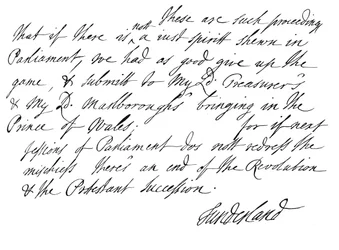 These are such proceedings
that if there is not a just spiritt shewn in
Parliament, we had as good give up the
game, & submitt to My Ld. Treasurer's
& My Ld. Marlborough's bringing in the
Prince of Wales; for if next
sessions of Parliament dos not redress the
mischiefs there's an end of the Revolution
& the Protestant succession.
Sunderland